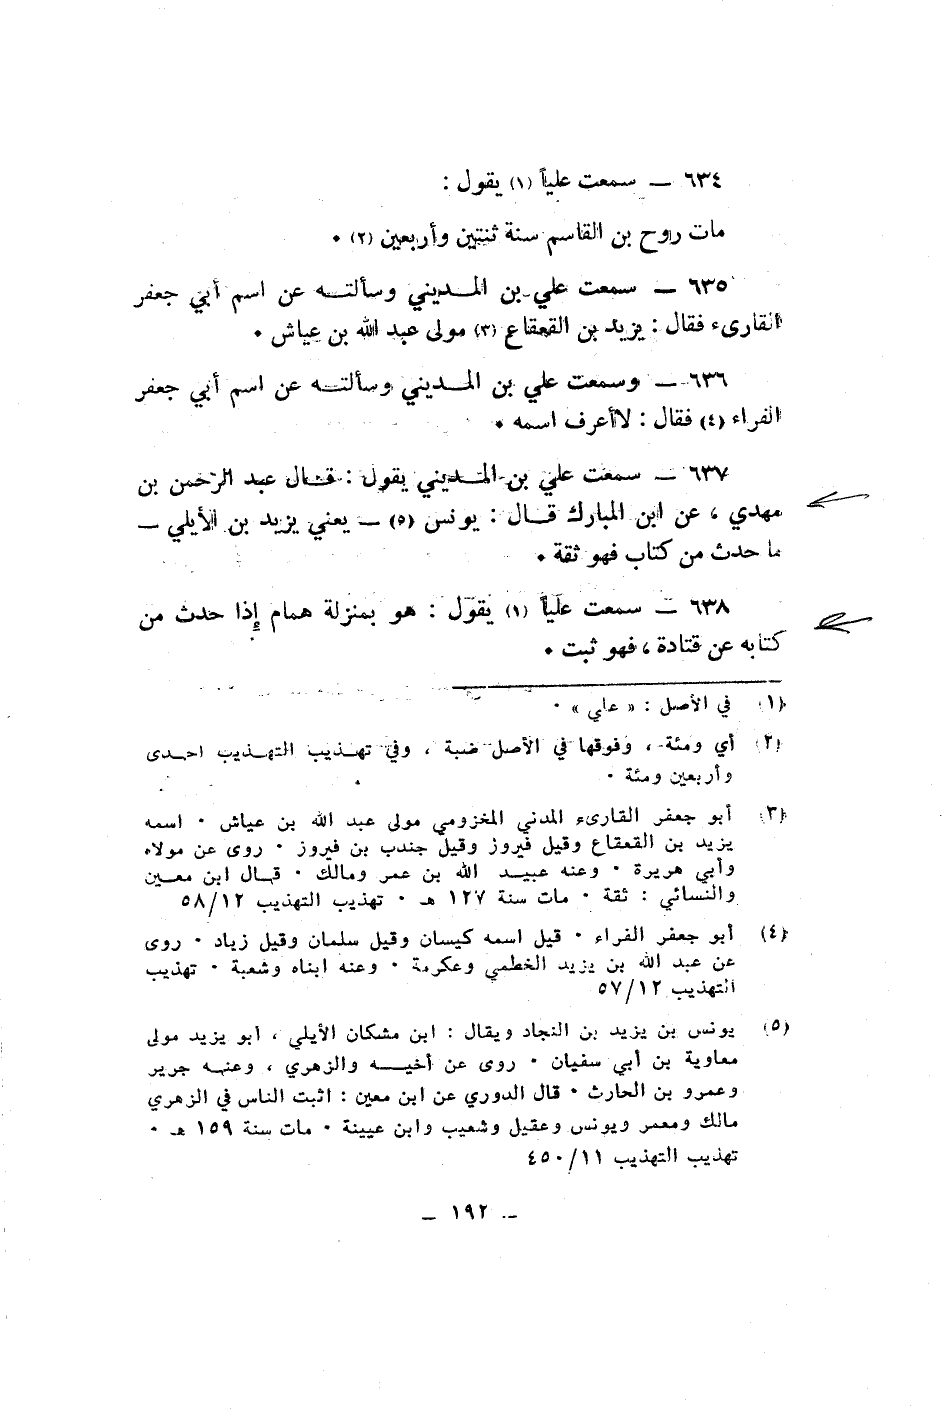 ٦٣٤ — سمعت علياً (١) يقول :
مات روح بن القاسم سنة ثنتين وأربعين (٢) ٠
٦٣٥ — سمعت علي بن المـــديني وسألتـــه عن اسم أبي جعفر
القارىء فقال : يزيد بن القعقاع (٣) مولى عبد الله بن عياش ٠
٦٣٦ — وسمعت علي بن المـــديني وسألتـــه عن اسم أبي جعفر
الفراء (٤) فقال : لاأعرف اسمه ٠
٦٣٧ — سمعت علي بن المـــديني يقول : قـــال عبد الرحمن بن
مهدي ، عن ابن المبارك قـــال : يونس (٥) — يعني يزيد بن الأيلي —
ما حدث من كتاب فهو ثقة ٠
٦٣٨ — سمعت علياً (١) يقول : هو بمنزلة همام إذا حدث من
كتابه عن قتادة ، فهو ثبت ٠
(١) في الأصل : « علي » ٠
(٢) أي ومئة ، وفوقها في الأصل ضبة ، وفي تهـــذيب التهـــذيب احـــدى
وأربعين ومئة ٠
(٣) أبو جعفر القارىء المدني المخزومي مولى عبد الله بن عياش ٠ اسمه
يزيد بن القعقاع وقيل فيروز وقيل جندب بن فيروز ٠ روى عن مولاه
وأبي هريرة ٠ وعنه عبيـــد الله بن عمر ومالك ٠ قـــال ابن معـــين
والنسائي : ثقة ٠ مات سنة ١٢٧ هـ ٠ تهذيب التهذيب ٥٨/١٢
(٤) أبو جعفر الفراء ٠ قيل اسمه كيسان وقيل سلمان وقيل زياد ٠ روى
عن عبد الله بن يزيد الخطمي وعكرمة ٠ وعنه ابناه وشعبة ٠ تهذيب
التهذيب ٥٧/١٢
(٥) يونس بن يزيد بن النجاد ويقال : ابن مشكان الأيلي ، أبو يزيد مولى
معاوية بن أبي سفيان ٠ روى عن أخيـــه والزهري ، وعنـــه جرير
وعمرو بن الحارث ٠ قال الدوري عن ابن معين : اثبت الناس في الزهري
مالك ومعمر ويونس وعقيل وشعيب وابن عيينة ٠ مات سنة ١٥٩ هـ ٠
تهذيب التهذيب ٤٥٠/١١
— ١٩٢ —